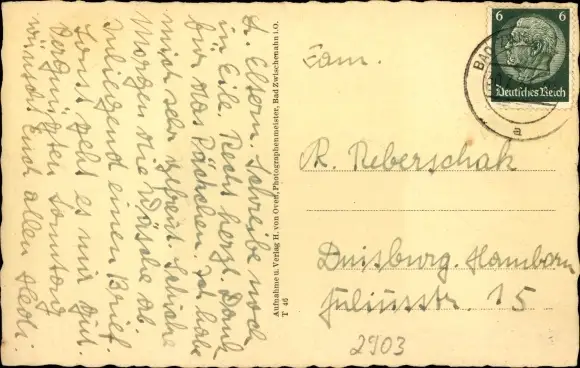 L. Eltern. Schreibe noch
in Eile. Recht herzl. Dank
für das Päckchen. Ich habe
mich sehr gefreut. Schicke
Morgen die Wäsche ab
inliegend einen Brief.
Sonst geht es mir gut.
Vergnügten Sonntag
wünscht Euch allen Hedi.
Aufnahme u. Verlag H. von Oven, Photographenmeister, Bad Zwischenahn i. O.
T 46
6 6
Deutsches Reich
BAD
Fam.
R. Reberschak
Duisburg. Hamborn
Juliusstr. 15
2903